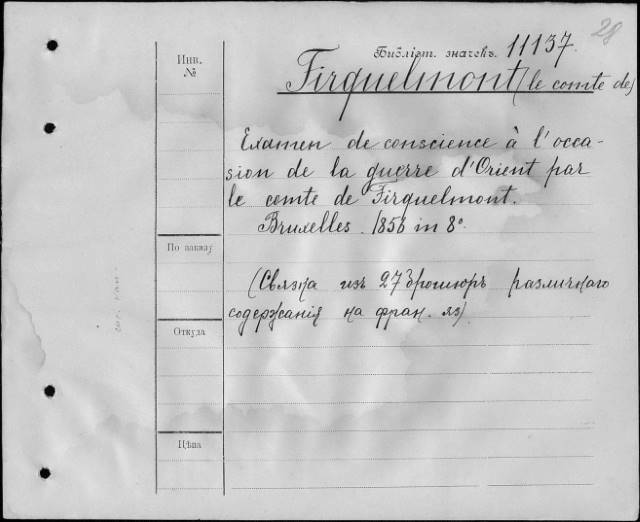 29
Инв.
№
Библіот. значекъ. 11137.
Firquelmont (le comte de)
Examen de conscience à l'occa-
sion de la guerre d'Orient par
le comte de Firquelmont.
Bruxelles. 1856 in 8º.
По заказу
(Связка изъ 27 брошюръ различнаго
содержанія на фран. яз)
Откуда
Цѣна